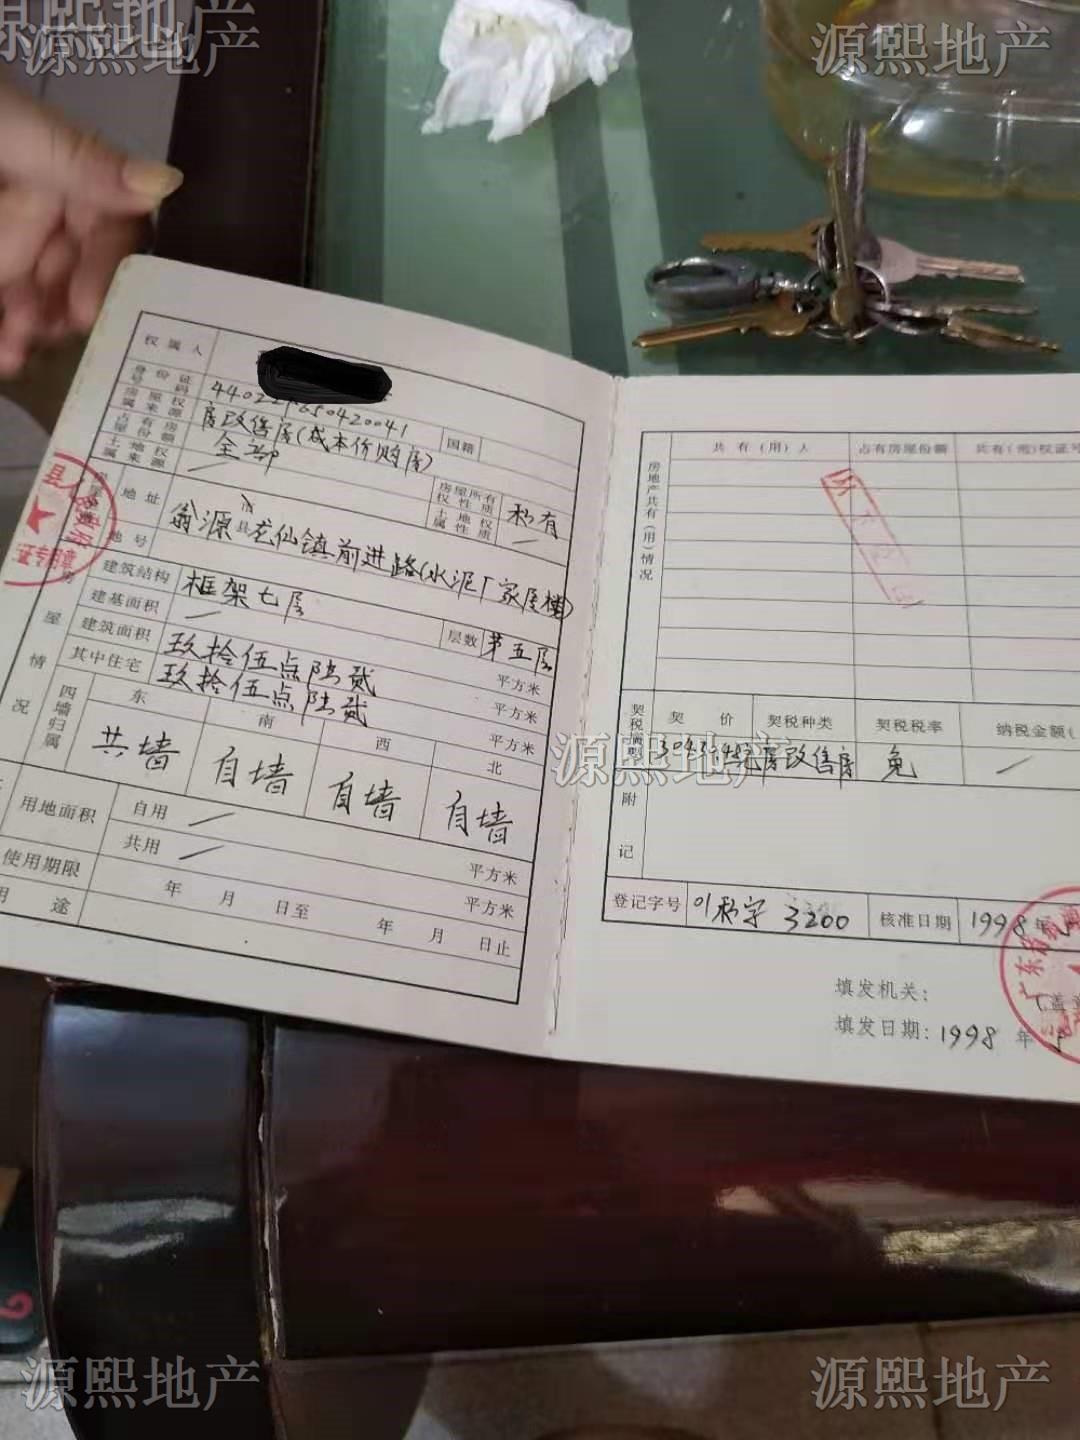 源熙地产
源熙地产
源熙地产
权属人
身份证号码
房屋权属来源 房改售房(成本价购房) 国籍
占有房屋份额 全部
土地权属来源 — 房屋所有权性质 私有
土地权属性质 —
地址 翁源县龙仙镇前进路(水泥厂家属楼)
地号
房屋情况
建筑结构 框架七层 层数 第五层
建基面积 — 平方米
建筑面积 玖拾伍点陆贰 平方米
其中住宅 玖拾伍点陆贰 平方米
四墙归属 东 南 西 北
共墙 自墙 自墙 自墙
用地面积 自用 — 平方米
共用 — 平方米
使用期限 年 月 日至 年 月 日止
用途
房地产共有(用)情况
共有(用)人 占有房屋份额 共有(用)权证号
契价 契税种类 契税税率 纳税金额(
房改售房 免 —
源熙地产
附记
登记字号 3200 核准日期 1998年
填发机关:
填发日期: 1998 年
源熙地产
源熙地产